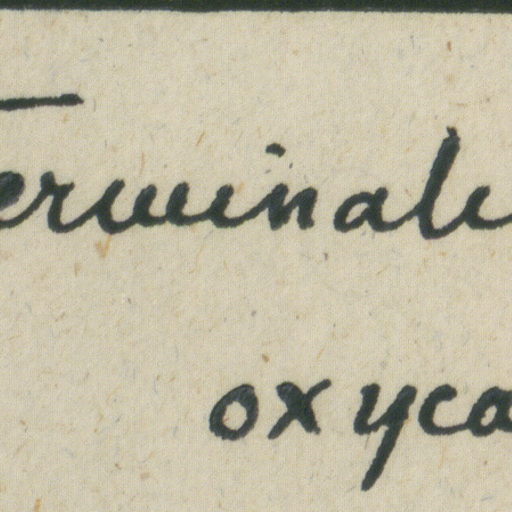 Terminali
oxyca